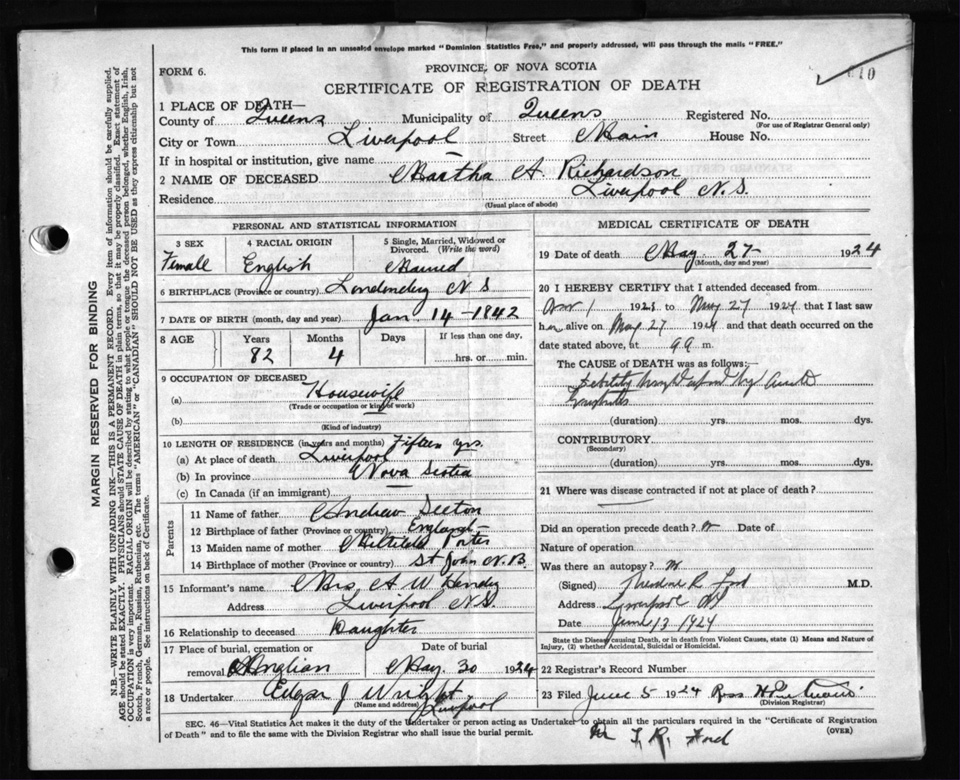 This form if placed in an unsealed envelope marked "Dominion Statistics Free," and properly addressed, will pass through the mails "FREE."
FORM 6.
PROVINCE OF NOVA SCOTIA
CERTIFICATE OF REGISTRATION OF DEATH
1 PLACE OF DEATH—
County of Queens Municipality of Queens Registered No.
(For use of Registrar General only)
City or Town Liverpool Street Main House No.
If in hospital or institution, give name
2 NAME OF DECEASED Martha A Richardson
Residence Liverpool N.S.
(Usual place of abode)
PERSONAL AND STATISTICAL INFORMATION
3 SEX Female
4 RACIAL ORIGIN English
5 Single, Married, Widowed or Divorced. (Write the word) Married
6 BIRTHPLACE (Province or country) Londonderry N S
7 DATE OF BIRTH (month, day and year) Jan 14-1842
8 AGE Years 82 Months 4 Days If less than one day, hrs. or min.
9 OCCUPATION OF DECEASED
(a) Housewife
(Trade or occupation or kind of work)
(b)
(Kind of industry)
10 LENGTH OF RESIDENCE (in years and months) Fifteen yrs.
(a) At place of death Liverpool
(b) In province Nova Scotia
(c) In Canada (if an immigrant)
Parents
11 Name of father Andrew
12 Birthplace of father (Province or country) England
13 Maiden name of mother Porter
14 Birthplace of mother (Province or country) St John N.B.
15 Informant's name Mrs A W Hendry
Address Liverpool N.S.
16 Relationship to deceased Daughter
17 Place of burial, cremation or removal Date of burial
May 30 1924
18 Undertaker Edgar J Wright
(Name and address) Liverpool
MEDICAL CERTIFICATE OF DEATH
19 Date of death May 27 1924
(Month, day and year)
20 I HEREBY CERTIFY that I attended deceased from
Nov 1 192 to May 27 1924 that I last saw
her alive on May 27 1924 and that death occurred on the
date stated above, at m.
The CAUSE OF DEATH was as follows:
Debility
(duration) yrs. mos. dys.
CONTRIBUTORY
(Secondary)
(duration) yrs. mos. dys.
21 Where was disease contracted if not at place of death?
Did an operation precede death? Date of
Nature of operation
Was there an autopsy? No
(Signed) Theodore R. Ford M.D.
Address Liverpool NS
Date June 13 1924
State the Disease causing Death, or in death from Violent Causes, state (1) Means and Nature of Injury, (2) whether Accidental, Suicidal or Homicidal.
22 Registrar's Record Number
23 Filed June 5 1924 Ross
(Division Registrar)
SEC. 46—Vital Statistics Act makes it the duty of the Undertaker or person acting as Undertaker to obtain all the particulars required in the "Certificate of Registration
of Death" and to file the same with the Division Registrar who shall issue the burial permit.
(OVER)
Dr T. R. Ford
MARGIN RESERVED FOR BINDING
N.B.—WRITE PLAINLY WITH UNFADING INK—THIS IS A PERMANENT RECORD. Every item of information should be carefully supplied.
AGE should be stated EXACTLY. PHYSICIANS should STATE CAUSE OF DEATH in plain terms, so that it may be properly classified. Exact statement of
OCCUPATION is very important. RACIAL ORIGIN will be described by stating to what people or tongue the deceased person belonged, whether English, Irish,
Scotch, French, German, Russian, Ruthenian, etc. The terms "AMERICAN" or "CANADIAN" SHOULD NOT BE USED as they express citizenship but not
a race or people. See instructions on back of Certificate.